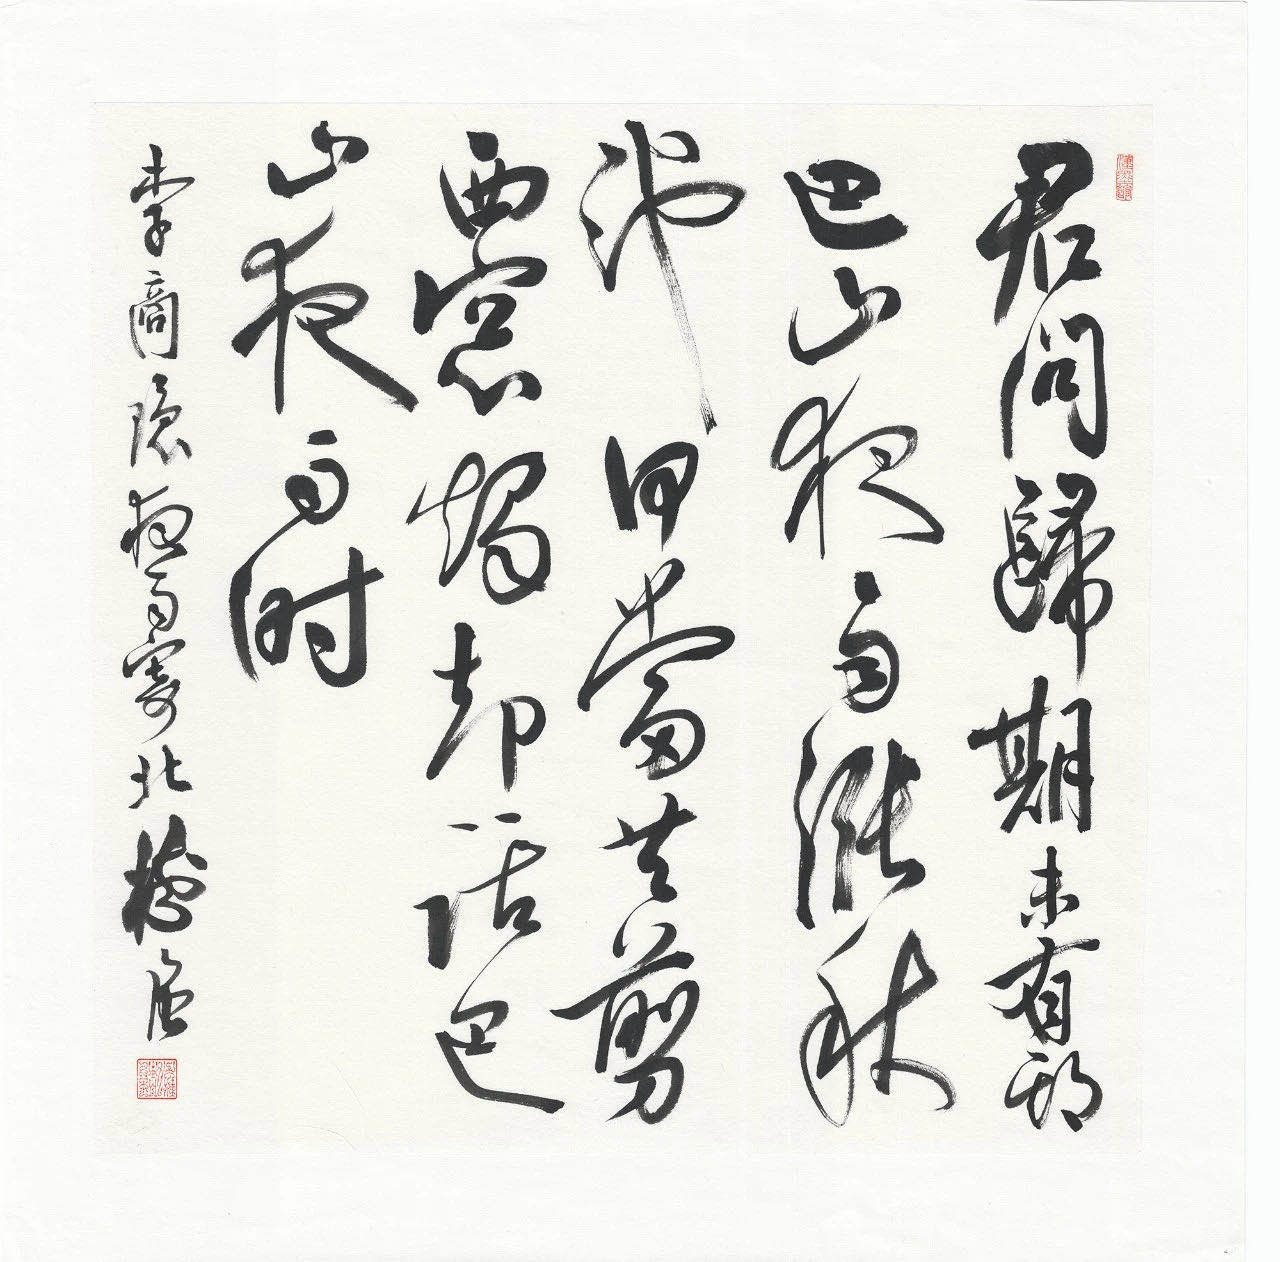 君問歸期未有期
巴山夜雨漲秋
池何當共剪
西窓燭却話巴
山夜雨时
李商隐夜雨寄北